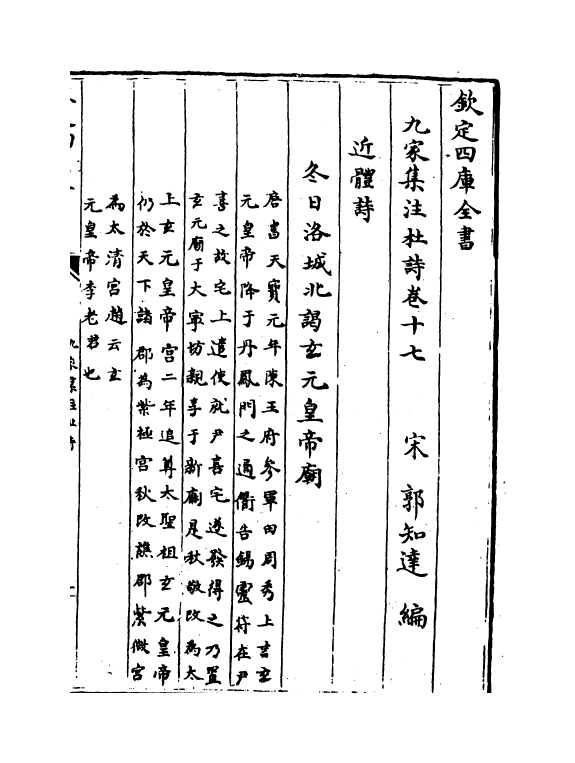 欽定四庫全書
九家集注杜詩卷十七　宋　郭知達　編
近體詩
冬日洛城北謁玄元皇帝廟
唐書天寶元年陳王府參軍田周秀上言玄
元皇帝降于丹鳳門之通衢告錫靈符在尹
喜之故宅上遣使就尹喜宅遂發得之乃置
玄元廟于大寧坊親享于新廟是秋敬改為太
上玄元皇帝宫二年追尊太聖祖玄元皇帝
仍於天下諸郡為紫極宫秋改譙郡紫微宫
為太清宫趙云玄
元皇帝李老君也
九家集注杜詩